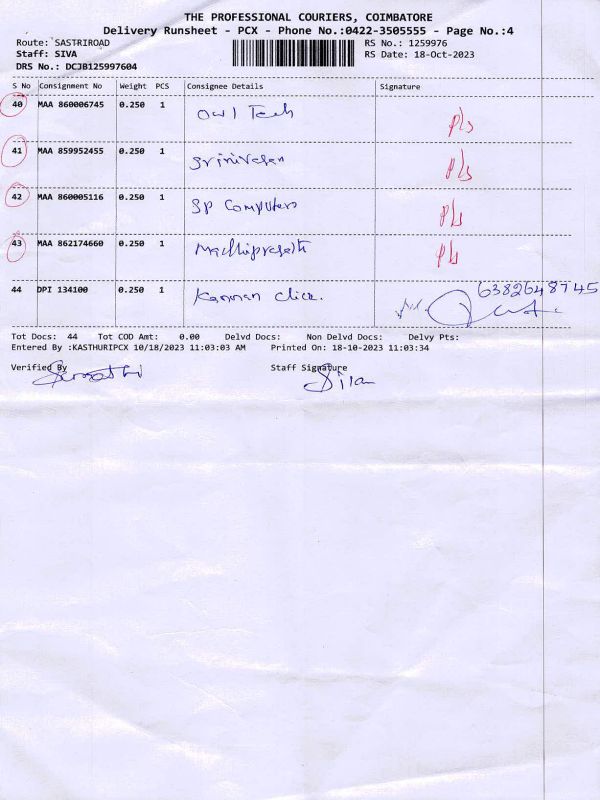 THE PROFESSIONAL COURIERS, COIMBATORE
Delivery Runsheet - PCX - Phone No.:0422-3505555 - Page No.:4
Route: SASTRIROAD
RS No.: 1259976
Staff: SIVA
RS Date: 18-Oct-2023
DRS No.: DCJB125997604
S No Consignment No Weight PCS Consignee Details Signature
40 MAA 860006745 0.250 1 Owl Tech Pls
41 MAA 859952455 0.250 1 Srinivasan Pls
42 MAA 860005116 0.250 1 SP Computers Pls
43 MAA 862174660 0.250 1 Pls
44 DPI 134100 0.250 1 Kannan 6382648745
Tot Docs: 44 Tot COD Amt: 0.00 Delvd Docs: Non Delvd Docs: Delvy Pts:
Entered By :KASTHURIPCX 10/18/2023 11:03:03 AM Printed On: 18-10-2023 11:03:34
Verified By Staff Signature